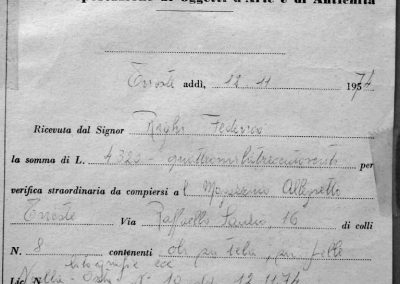 di Oggetti d'Arte e di Antichità
Trieste addì, 12 11 1974
Ricevuta dal Signor Righi Federico
la somma di L. 4320 - quattromilatrecentoventi per
verifica straordinaria da compiersi al Magazzino Allegretto
Trieste Via Raffaello Sanzio, 16 di colli
N. 8 contenenti oli su tela, su pelle
litografie ecc
Lic. N. N° 10 del 12.11.74